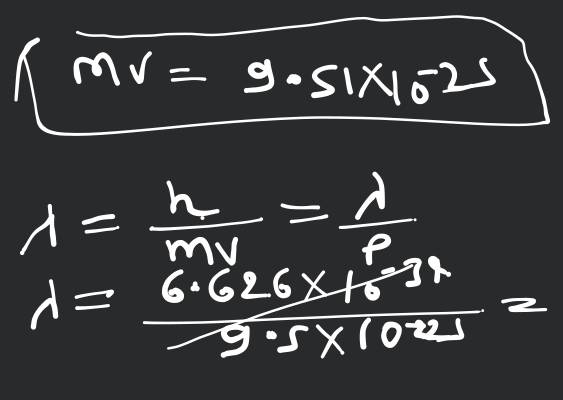 mv = 9.51×10⁻²⁵
λ = h/mv = λ/p
λ = 6.626×10⁻³⁴/9.5×10⁻²⁵ =